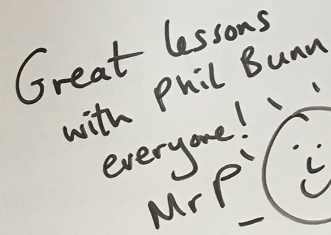 Great lessons
with Phil Bunn
everyone!
Mr P